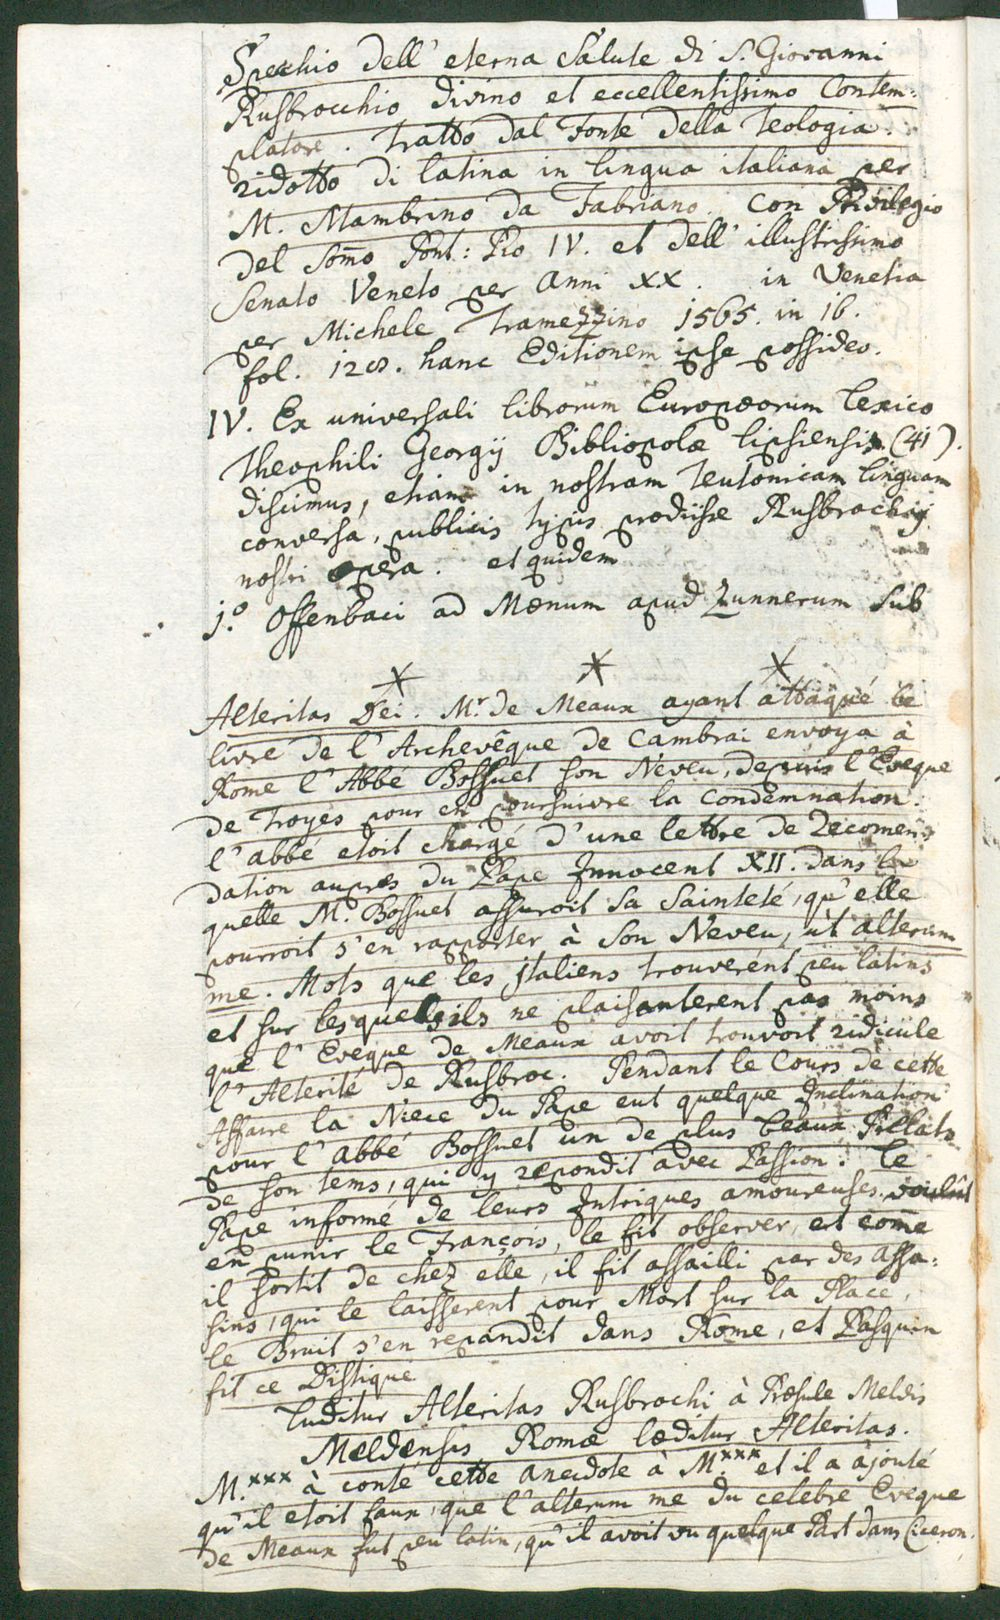 Specchio dell' eterna Salute di S. Giovanni
Rusbrocchio divino et eccellentissimo Contem=
platore. tratto dal Fonte della Teologia.
ridotto di latina in lingua italiana per
M. Mambrino da Fabriano. Con Privilegio
del Som̄o Pont: Pio IV. et dell' illustrissimo
Senato Veneto per Anni XX. in Venetia
per Michele Tramezzino 1565. in 16.
fol. 128. hanc Editionem ipse possideo.
IV. Ex universali librorum Europæorum Lexico
Theophili Georgij Bibliopolæ lipsiensis (41).
discimus, etiam in nostram Teutonicam linguam
conversa, publicis typis prodiisse Rusbrochij
nostri opera. et quidem
1.º Offenbaci ad Mœnum apud Zunnerum Sub
Alteritas Dei. Mr. de Meaux ayant attaqué le
livre de l'Archevêque de Cambrai envoya à
Rome l'Abbé Bossuet son Neveu, depuis l'Eveque
de Troyes pour en poursuivre la Condemnation.
l'abbé etoit chargé d'une lettre de Recomen=
dation aupres du Pape Innocent XII. dans la
quelle M. Bossuet assuroit Sa Sainteté, qu'elle
pourroit s'en rapporter à Son Neveu, ùt alterum
me. Mots que les Italiens trouverént peu latins
et sur lesquells ils ne plaisanterent pas moins
que l'Eveque de Meaux avoit trouvoit ridicule
l'Alterité de Rusbroc. Pendant le Cours de cette
Affaire la Niece du Pape eut quelque Inclination
pour l'abbé Bossuet un de plus beaux Prélats
de son tems, qui y repondit avec Passion: le
Pape informé de leurs Intriques amoureuses voulût
en punir le François, le fit observer, et com̄e
il sortit de chez elle, il fit assailli par des assa=
sins, qui le laisserent pour Mort sur la Place,
le Bruit s'en repandit dans Rome, et Pasquin
fit ce Distique
Luditur Alteritas Rusbrochi à Præsule Meldis
Meldensis Romæ læditur Alteritas.
M.xxx à conté cette anecdote à M.xxx et il a àjouté
qu'il etoit faux, que l'alterum me du celebre Eveque
de Meaux fut peu latin, qu'il avoit vu quelque Part dans Ciceron.